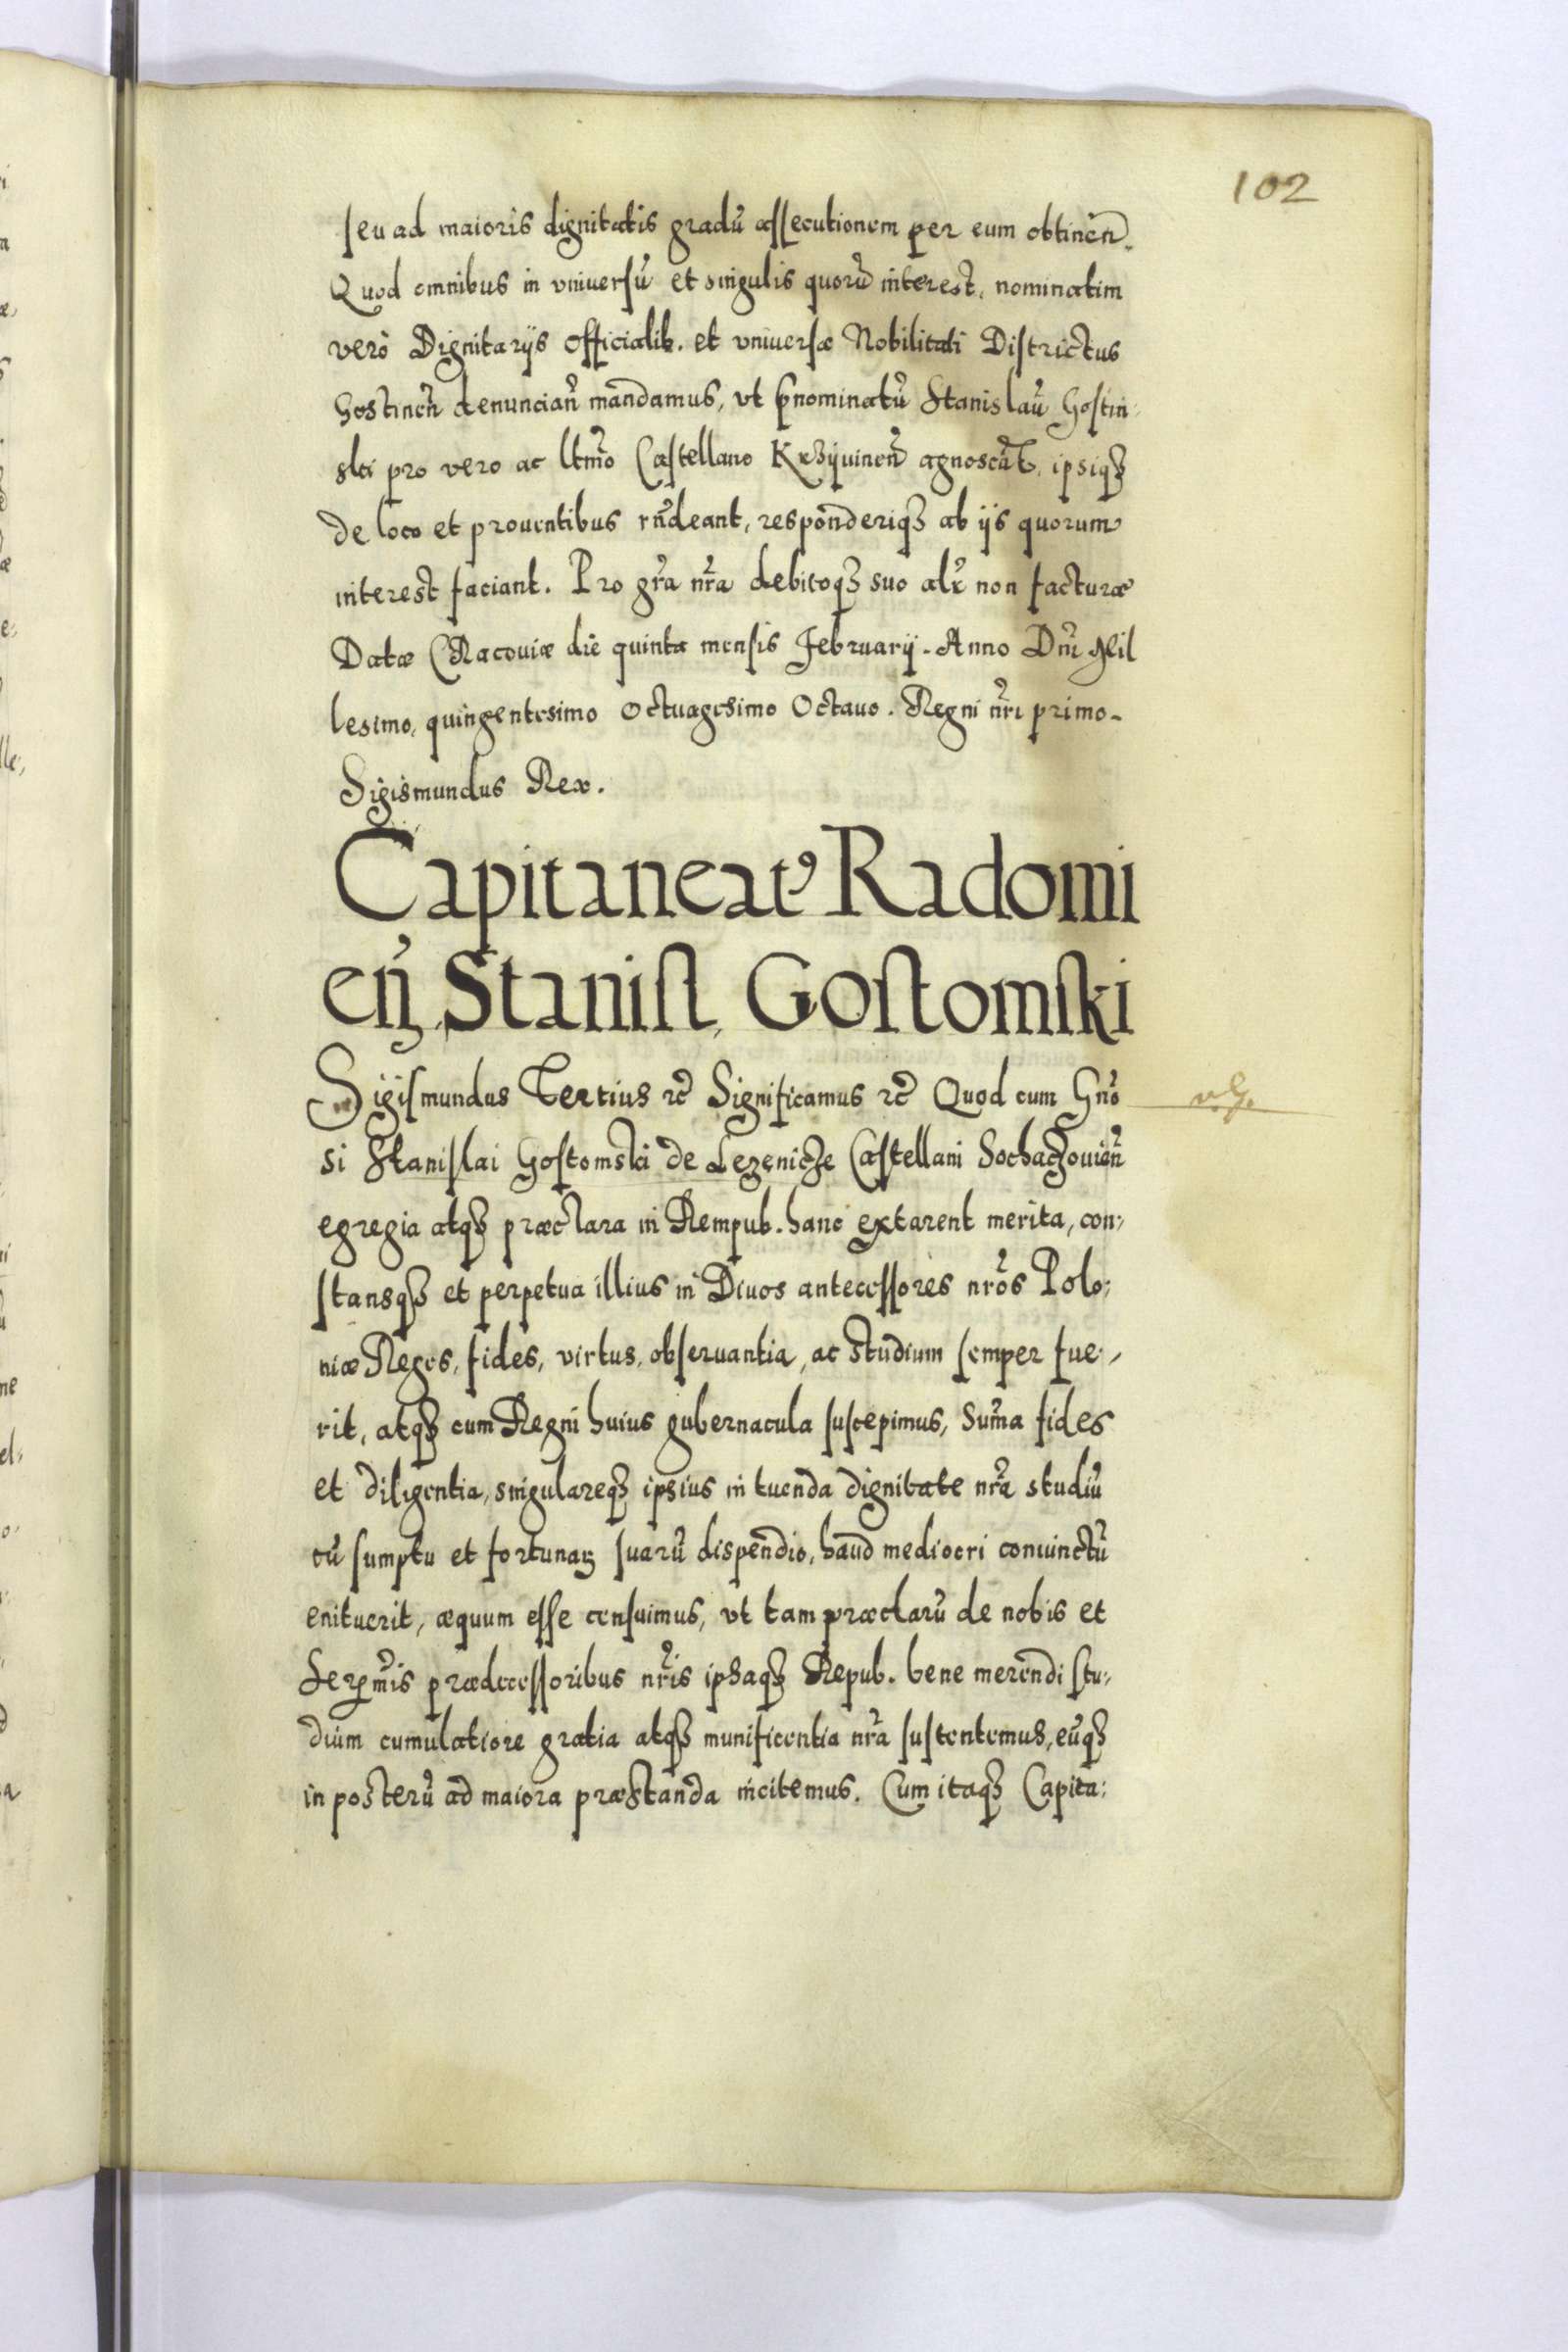 102
seu ad maioris dignitatis gradũ assecutionem per eum obtineñ.
Quod omnibus in vniuersũ et singulis quorũ interest, nominatim
verò Dignitarijs Officialib. et vniuersæ Nobilitati Districtus
Gostineñ denunciañ mandamus, vt pñominatũ Stanislaũ Gostin-
ski pro vero ac ltmo Castellano Krzywineñ agnoscãt, ipsiqȝ
de loco et prouentibus rñdeant, responderiqȝ ab ijs quorum
interest faciant. Pro gr̃a nr̃a debitoqȝ suo alr̃ non facturæ
Datæ Cracouiæ die quinta mensis February. Anno Dñi Mil
lesimo, quingentesimo Octuagesimo Octauo. Regni nr̃i primo.
Sigismundus Rex.
Capitaneatꝰ Radomi
eñ, Stanisl, Gostomski
Sigismundus Tertius rc̃ Significamus rc̃ Quod cum GñO
si Stanislai Gostomski de Lezenicze Castellani Sochaczouieñ
egregia atqȝ præclara in Rempub. hanc extarent merita, con:
stansqȝ et perpetua illius in Diuos antecessores nr̃os Polo:
niæ Reges, fides, virtus, obseruantia, ac studium semper fue:
rit, atqȝ cum Regni huius gubernacula suscepimus, Sum̃a fides
et diligentia, singulareqȝ ipsius in tuenda dignitate nr̃a studiũ
cũ sumptu et fortunaꝝ suarũ dispendio, haud mediocri conuinctũ
enituerit, æquum esse censuimus, vt tam præclarũ de nobis et
Serm̃is prædecessoribus nr̃is ipsaqȝ Repub. bene merendi stu:
dium cumulatiore gratia atqȝ munificentia nr̃a sustentemus, eũqȝ
in posterũ ad maiora præstanda incitemus. Cum itaqȝ Capita: